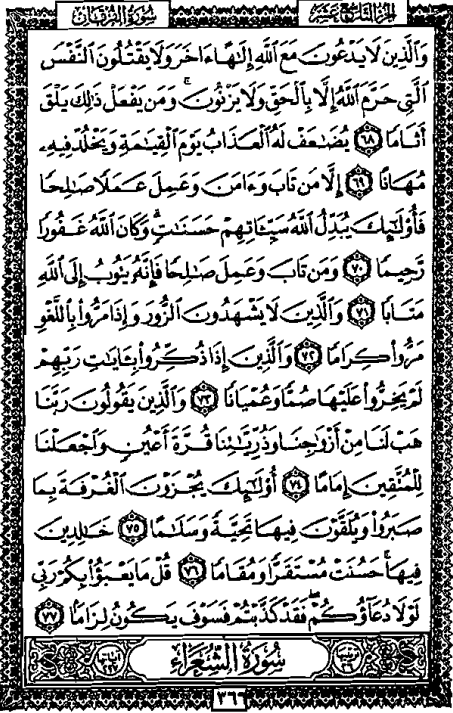 سورة الفرقان
الجزء التاسع عشر
وَٱلَّذِينَ لَا يَدْعُونَ مَعَ ٱللَّهِ إِلَٰهًا ءَاخَرَ وَلَا يَقْتُلُونَ ٱلنَّفْسَ
ٱلَّتِى حَرَّمَ ٱللَّهُ إِلَّا بِٱلْحَقِّ وَلَا يَزْنُونَ ۚ وَمَن يَفْعَلْ ذَٰلِكَ يَلْقَ
أَثَامًا ٦٨ يُضَٰعَفْ لَهُ ٱلْعَذَابُ يَوْمَ ٱلْقِيَٰمَةِ وَيَخْلُدْ فِيهِۦ
مُهَانًا ٦٩ إِلَّا مَن تَابَ وَءَامَنَ وَعَمِلَ عَمَلًا صَٰلِحًا
فَأُو۟لَٰٓئِكَ يُبَدِّلُ ٱللَّهُ سَيِّـَٔاتِهِمْ حَسَنَٰتٍ ۗ وَكَانَ ٱللَّهُ غَفُورًا
رَّحِيمًا ٧٠ وَمَن تَابَ وَعَمِلَ صَٰلِحًا فَإِنَّهُۥ يَتُوبُ إِلَى ٱللَّهِ
مَتَابًا ٧١ وَٱلَّذِينَ لَا يَشْهَدُونَ ٱلزُّورَ وَإِذَا مَرُّوا۟ بِٱللَّغْوِ
مَرُّوا۟ كِرَامًا ٧٢ وَٱلَّذِينَ إِذَا ذُكِّرُوا۟ بِـَٔايَٰتِ رَبِّهِمْ
لَمْ يَخِرُّوا۟ عَلَيْهَا صُمًّا وَعُمْيَانًا ٧٣ وَٱلَّذِينَ يَقُولُونَ رَبَّنَا
هَبْ لَنَا مِنْ أَزْوَٰجِنَا وَذُرِّيَّٰتِنَا قُرَّةَ أَعْيُنٍ وَٱجْعَلْنَا
لِلْمُتَّقِينَ إِمَامًا ٧٤ أُو۟لَٰٓئِكَ يُجْزَوْنَ ٱلْغُرْفَةَ بِمَا
صَبَرُوا۟ وَيُلَقَّوْنَ فِيهَا تَحِيَّةً وَسَلَٰمًا ٧٥ خَٰلِدِينَ
فِيهَا ۚ حَسُنَتْ مُسْتَقَرًّا وَمُقَامًا ٧٦ قُلْ مَا يَعْبَؤُا۟ بِكُمْ رَبِّى
لَوْلَا دُعَآؤُكُمْ ۖ فَقَدْ كَذَّبْتُمْ فَسَوْفَ يَكُونُ لِزَامًۢا ٧٧
سورة الشعراء
٣٦٦